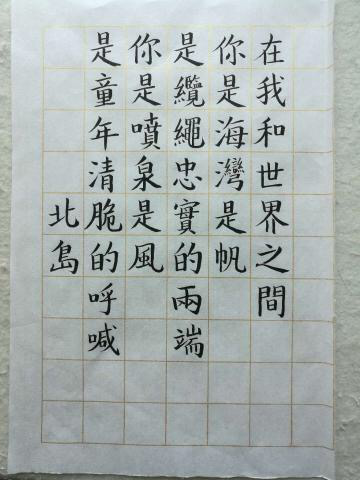 在我和世界之間
你是海灣是帆
是纜繩忠實的兩端
你是噴泉是風
是童年清脆的呼喊
北島